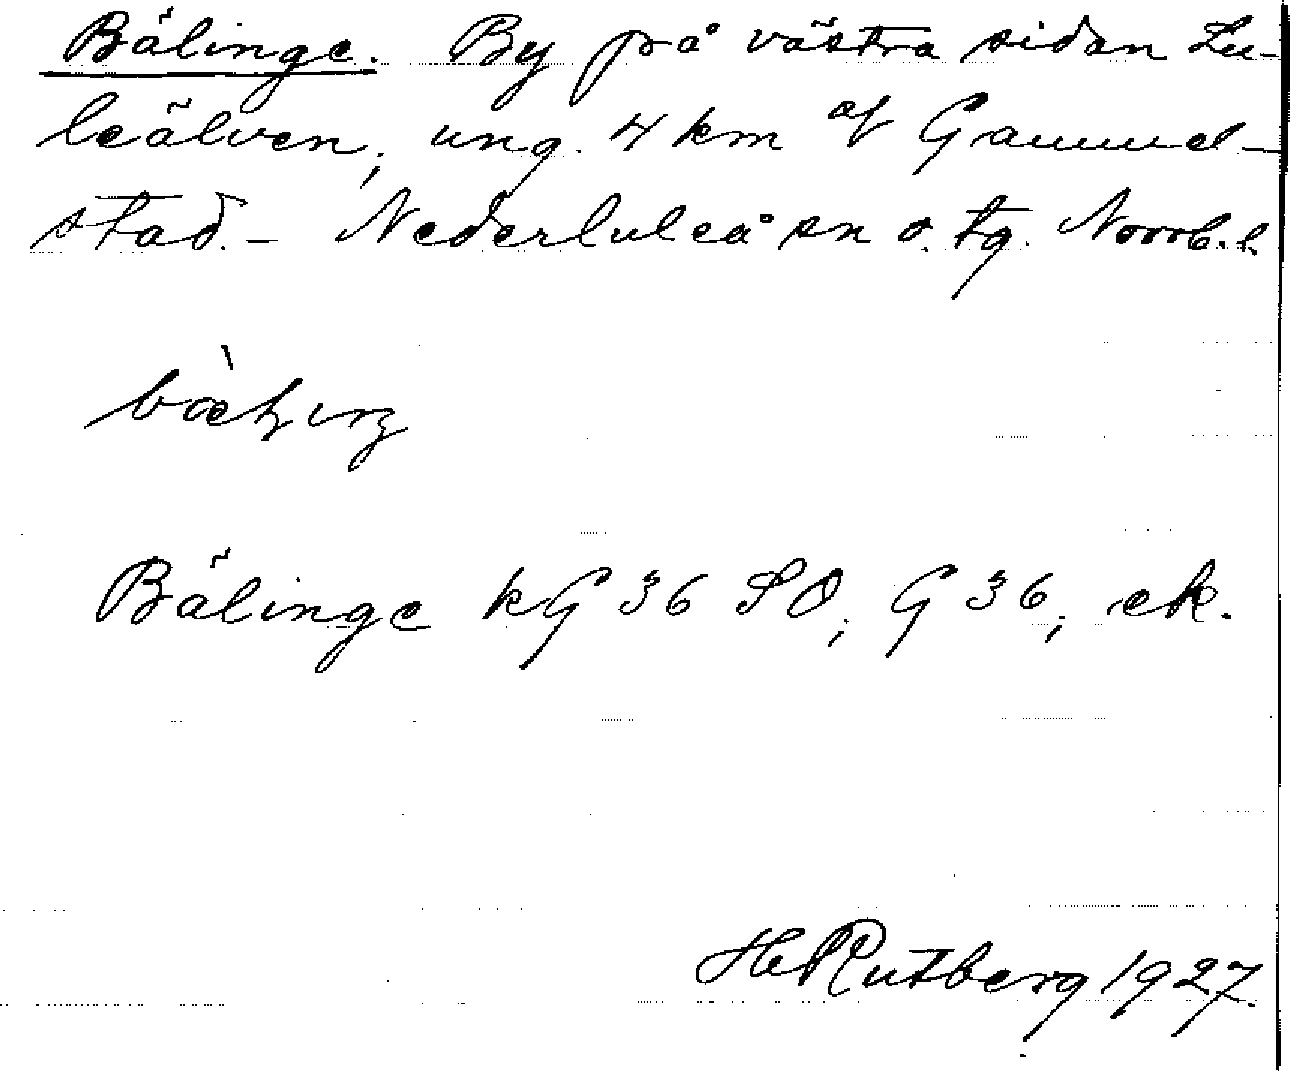 Bälinge. By på västra sidan Lu-
leälven, ung. 4 km af Gammel-
stad. - Nederluleå sn o. tg. Norrb. l.
Bälinge kG 36 SO, G 36, ek.
H Rutberg 1927.